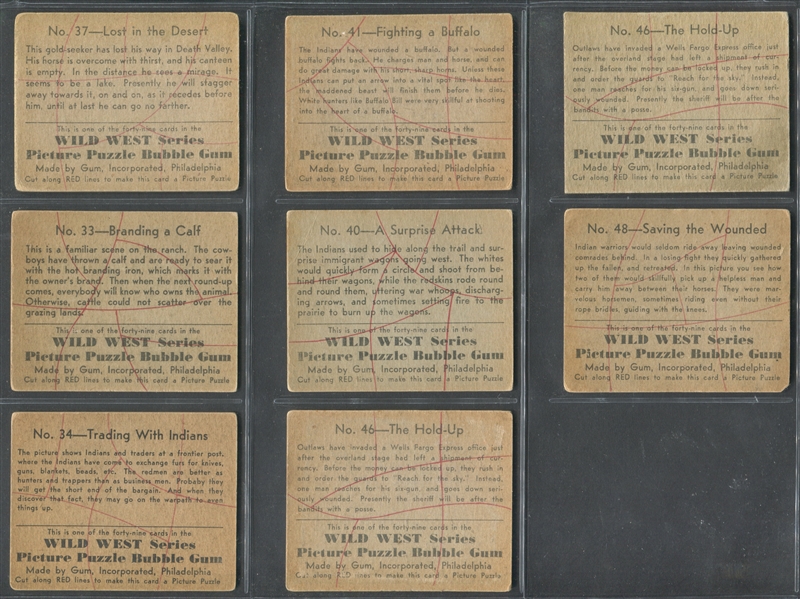 No. 37—Lost in the Desert
This gold seeker has lost his way in Death Valley.
His horse is overcome with thirst, and his canteen
is empty. In the distance he sees a mirage. It
seems to be a lake. Presently he will stagger
away towards it, on and on, as it recedes before
him, until at last he can go no farther.
This is one of the forty-nine cards in the
WILD WEST Series
Picture Puzzle Bubble Gum
Made by Gum, Incorporated, Philadelphia
Cut along RED lines to make this card a Picture Puzzle
No. 41—Fighting a Buffalo
The Indians have wounded a buffalo. But a wounded
buffalo fights back. He charges man and horse, and can
do great damage with his short, sharp horns. Unless these
Indians can put an arrow into a vital spot like the heart,
the maddened beast will finish them before he dies.
White hunters like Buffalo Bill were very skillful at shooting
into the heart of a buffalo.
This is one of the forty-nine cards in the
WILD WEST Series
Picture Puzzle Bubble Gum
Made by Gum, Incorporated, Philadelphia
Cut along RED lines to make this card a Picture Puzzle
No. 46—The Hold-Up
Outlaws have invaded a Wells Fargo Express office just
after the overland stage had left a shipment of cur-
rency. Before the money can be locked up, they rush in
and order the guards to "Reach for the sky." Instead,
one man reaches for his six-gun, and goes down seri-
ously wounded. Presently the sheriff will be after the
bandits with a posse.
This is one of the forty-nine cards in the
WILD WEST Series
Picture Puzzle Bubble Gum
Made by Gum, Incorporated, Philadelphia
Cut along RED lines to make this card a Picture Puzzle
No. 33—Branding a Calf
This is a familiar scene on the ranch. The cow-
boys have thrown a calf and are ready to sear it
with the hot branding iron, which marks it with
the owner's brand. Then when the next round-up
comes, everybody will know who owns the animal.
Otherwise, cattle could not scatter over the
grazing lands.
This is one of the forty-nine cards in the
WILD WEST Series
Picture Puzzle Bubble Gum
Made by Gum, Incorporated, Philadelphia
Cut along RED lines to make this card a Picture Puzzle
No. 40—A Surprise Attack
The Indians used to hide along the trail and sur-
prise immigrant wagons going west. The whites
would quickly form a circle and shoot from be-
hind their wagons, while the redskins rode round
and round them, uttering war whoops, discharg-
ing arrows, and sometimes setting fire to the
prairie to burn up the wagons.
This is one of the forty-nine cards in the
WILD WEST Series
Picture Puzzle Bubble Gum
Made by Gum, Incorporated, Philadelphia
Cut along RED lines to make this card a Picture Puzzle
No. 48—Saving the Wounded
Indian warriors would seldom ride away leaving wounded
comrades behind. In a losing fight they quickly gathered
up the fallen, and retreated. In this picture you see how
two of them would skillfully pick up a helpless man and
carry him away between their horses. They were mar-
velous horsemen, sometimes riding even without their
rope bridles, guiding with the knees.
This is one of the forty-nine cards in the
WILD WEST Series
Picture Puzzle Bubble Gum
Made by Gum, Incorporated, Philadelphia
Cut along RED lines to make this card a Picture Puzzle
No. 34—Trading With Indians
The picture shows Indians and traders at a frontier post,
where the Indians have come to exchange furs for knives,
guns, blankets, beads, etc. The redmen are better as
hunters and trappers than as business men. Probably they
will get the short end of the bargain. And when they
discover that fact, they may go on the warpath to even
things up.
This is one of the forty-nine cards in the
WILD WEST Series
Picture Puzzle Bubble Gum
Made by Gum, Incorporated, Philadelphia
Cut along RED lines to make this card a Picture Puzzle
No. 46—The Hold-Up
Outlaws have invaded a Wells Fargo Express office just
after the overland stage had left a shipment of cur-
rency. Before the money can be locked up, they rush in
and order the guards to "Reach for the sky." Instead,
one man reaches for his six-gun, and goes down seri-
ously wounded. Presently the sheriff will be after the
bandits with a posse.
This is one of the forty-nine cards in the
WILD WEST Series
Picture Puzzle Bubble Gum
Made by Gum, Incorporated, Philadelphia
Cut along RED lines to make this card a Picture Puzzle